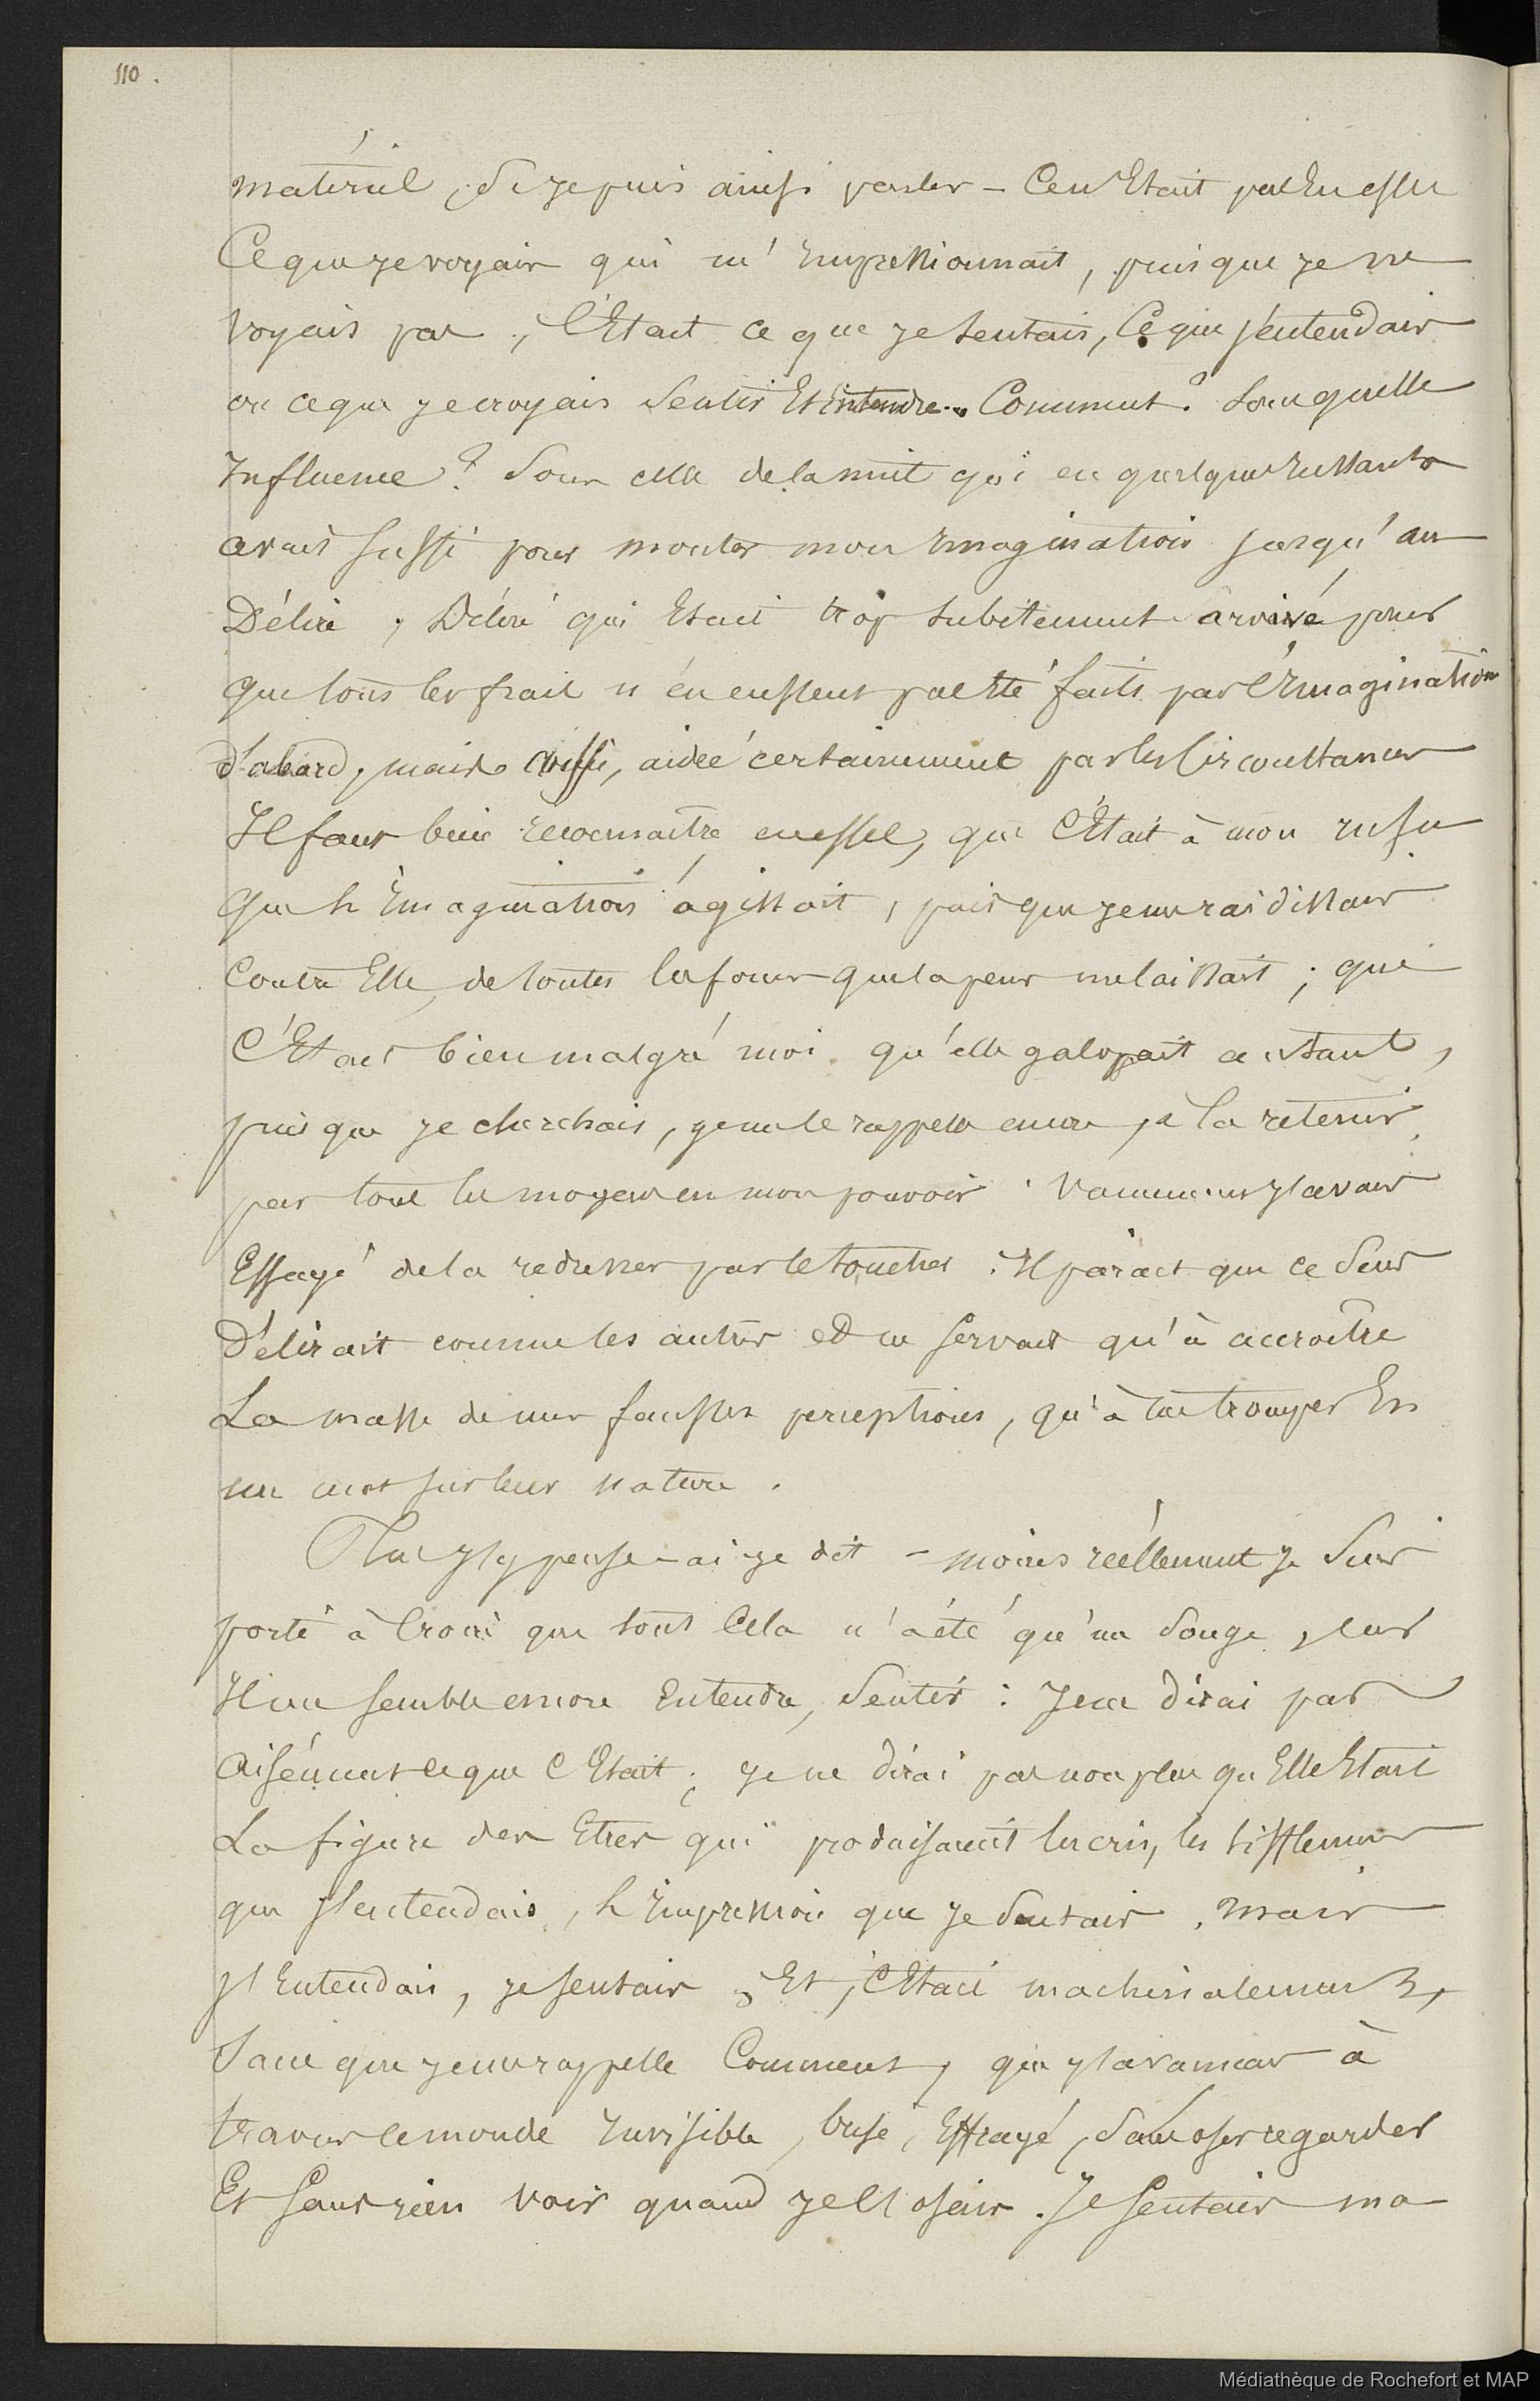 110.
matériel, si je puis ainsi parler – Ce n'Etait pas En effet
Ce que je voyais qui m'Impressionnait, puisque je ne
voyais pas ; C'Etait ce que je sentais, Ce que j'entendais
ou ce que je croyais Sentir Et Entendre. Comment ? Sous quelle
Influence ? Sous celle de la nuit qui en quelques Instants
avait suffi pour monter mon Imagination jusqu'au
Délire ; Délire qui Etait trop subitement arrivé pour
que tous les frais n'en eussent pas Eté faits par l'Imagination
d'abord, mais aussi, aidée certainement par les Circonstances
Il faut bien reconnaître en effet, que C'Etait à mon insu
que l'Imagination agissait, puisque je me raidissais
Contre Elle, de toutes les forces que la peur me laissait ; que
C'Etait bien malgré moi qu'elle galopait autant,
puisque je cherchais, je me le rappelle encore, à la retenir
par tous les moyens en mon pouvoir. Vainement j'avais
Essayé de la redresser par le toucher. Il parait que ce Sens
Délirait comme les autres et ne servait qu'à accroître
La masse de mes fausses perceptions, qu'à me tromper En
un mot sur leur nature.
Plus j'y pense – ai-je dit – moins réellement je Suis
porté à Croire que tout Cela n'a été qu'un Songe, car
Il me semble encore Entendre, Sentir : Je ne dirai pas
aisément ce que C'Etait ; je ne dirai pas non plus qu'Elle Etait
La figure des Etres qui produisaient les cris, les sifflements
que j'entendais, l'Impression que je Sentais. Mais
j'Entendais, je sentais, Et, C'Etait machinalement,
Sans que je me rappelle Comment, que j'avançais à
travers le monde Invisible, brisé, Effrayé, Sans oser regarder
Et Sans rien voir quand je l'osais. Je Sentais ma
Médiathèque de Rochefort et MAP